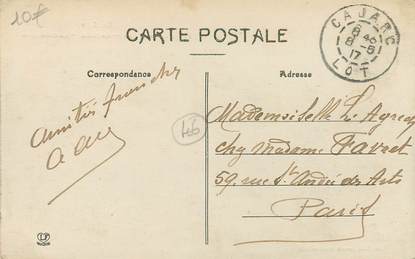 10€
CARTE POSTALE
CAJARC
8 45
8 -8
17
LOT
Correspondance
Adresse
Amitiés
46
Mademoiselle L.
chez Madame Favret
59, rue St André des Arts
Paris